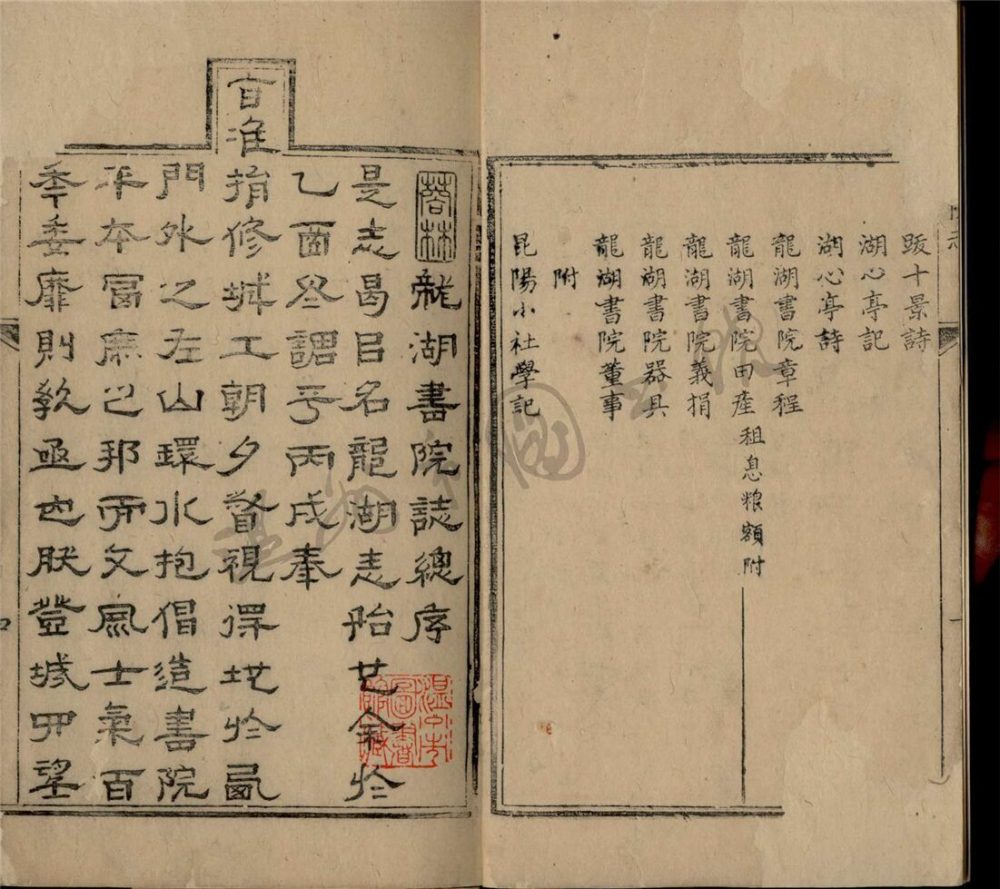 跋十景詩
湖心亭記
湖心亭詩
龍湖書院章程
龍湖書院田產租息粮額附
龍湖書院義捐
龍湖書院器具
龍湖書院董事
附
昆陽小社學記
蓉林
龍湖書院誌總序
是志曷㠯名龍湖志始也余於
乙酉冬調平丙戌奉
旨准
捐修城工朝夕督視得地於西
門外之左山環水抱倡造書院
平本富庶之邦而文風士氣百
年委靡則教亟也肰登城四望
溫州市圖書館藏